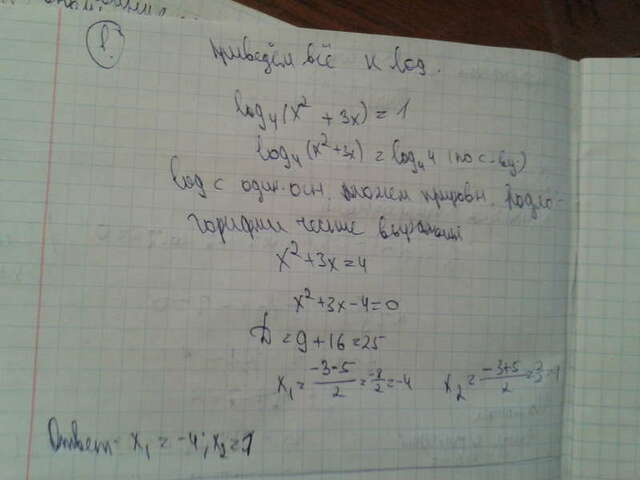 Приведём всё к log.
log₄(x² + 3x) = 1
log₄(x²+3x) = log₄4 (по с-ву)
log с один. осн. можем приравн. подло-
гарифмические выражения
x²+3x=4
x²+3x-4=0
D=9+16=25
x₁=(-3-5)/2=-8/2=-4 x₂=(-3+5)/2=2/2=1
Ответ: x₁=-4; x₂=1